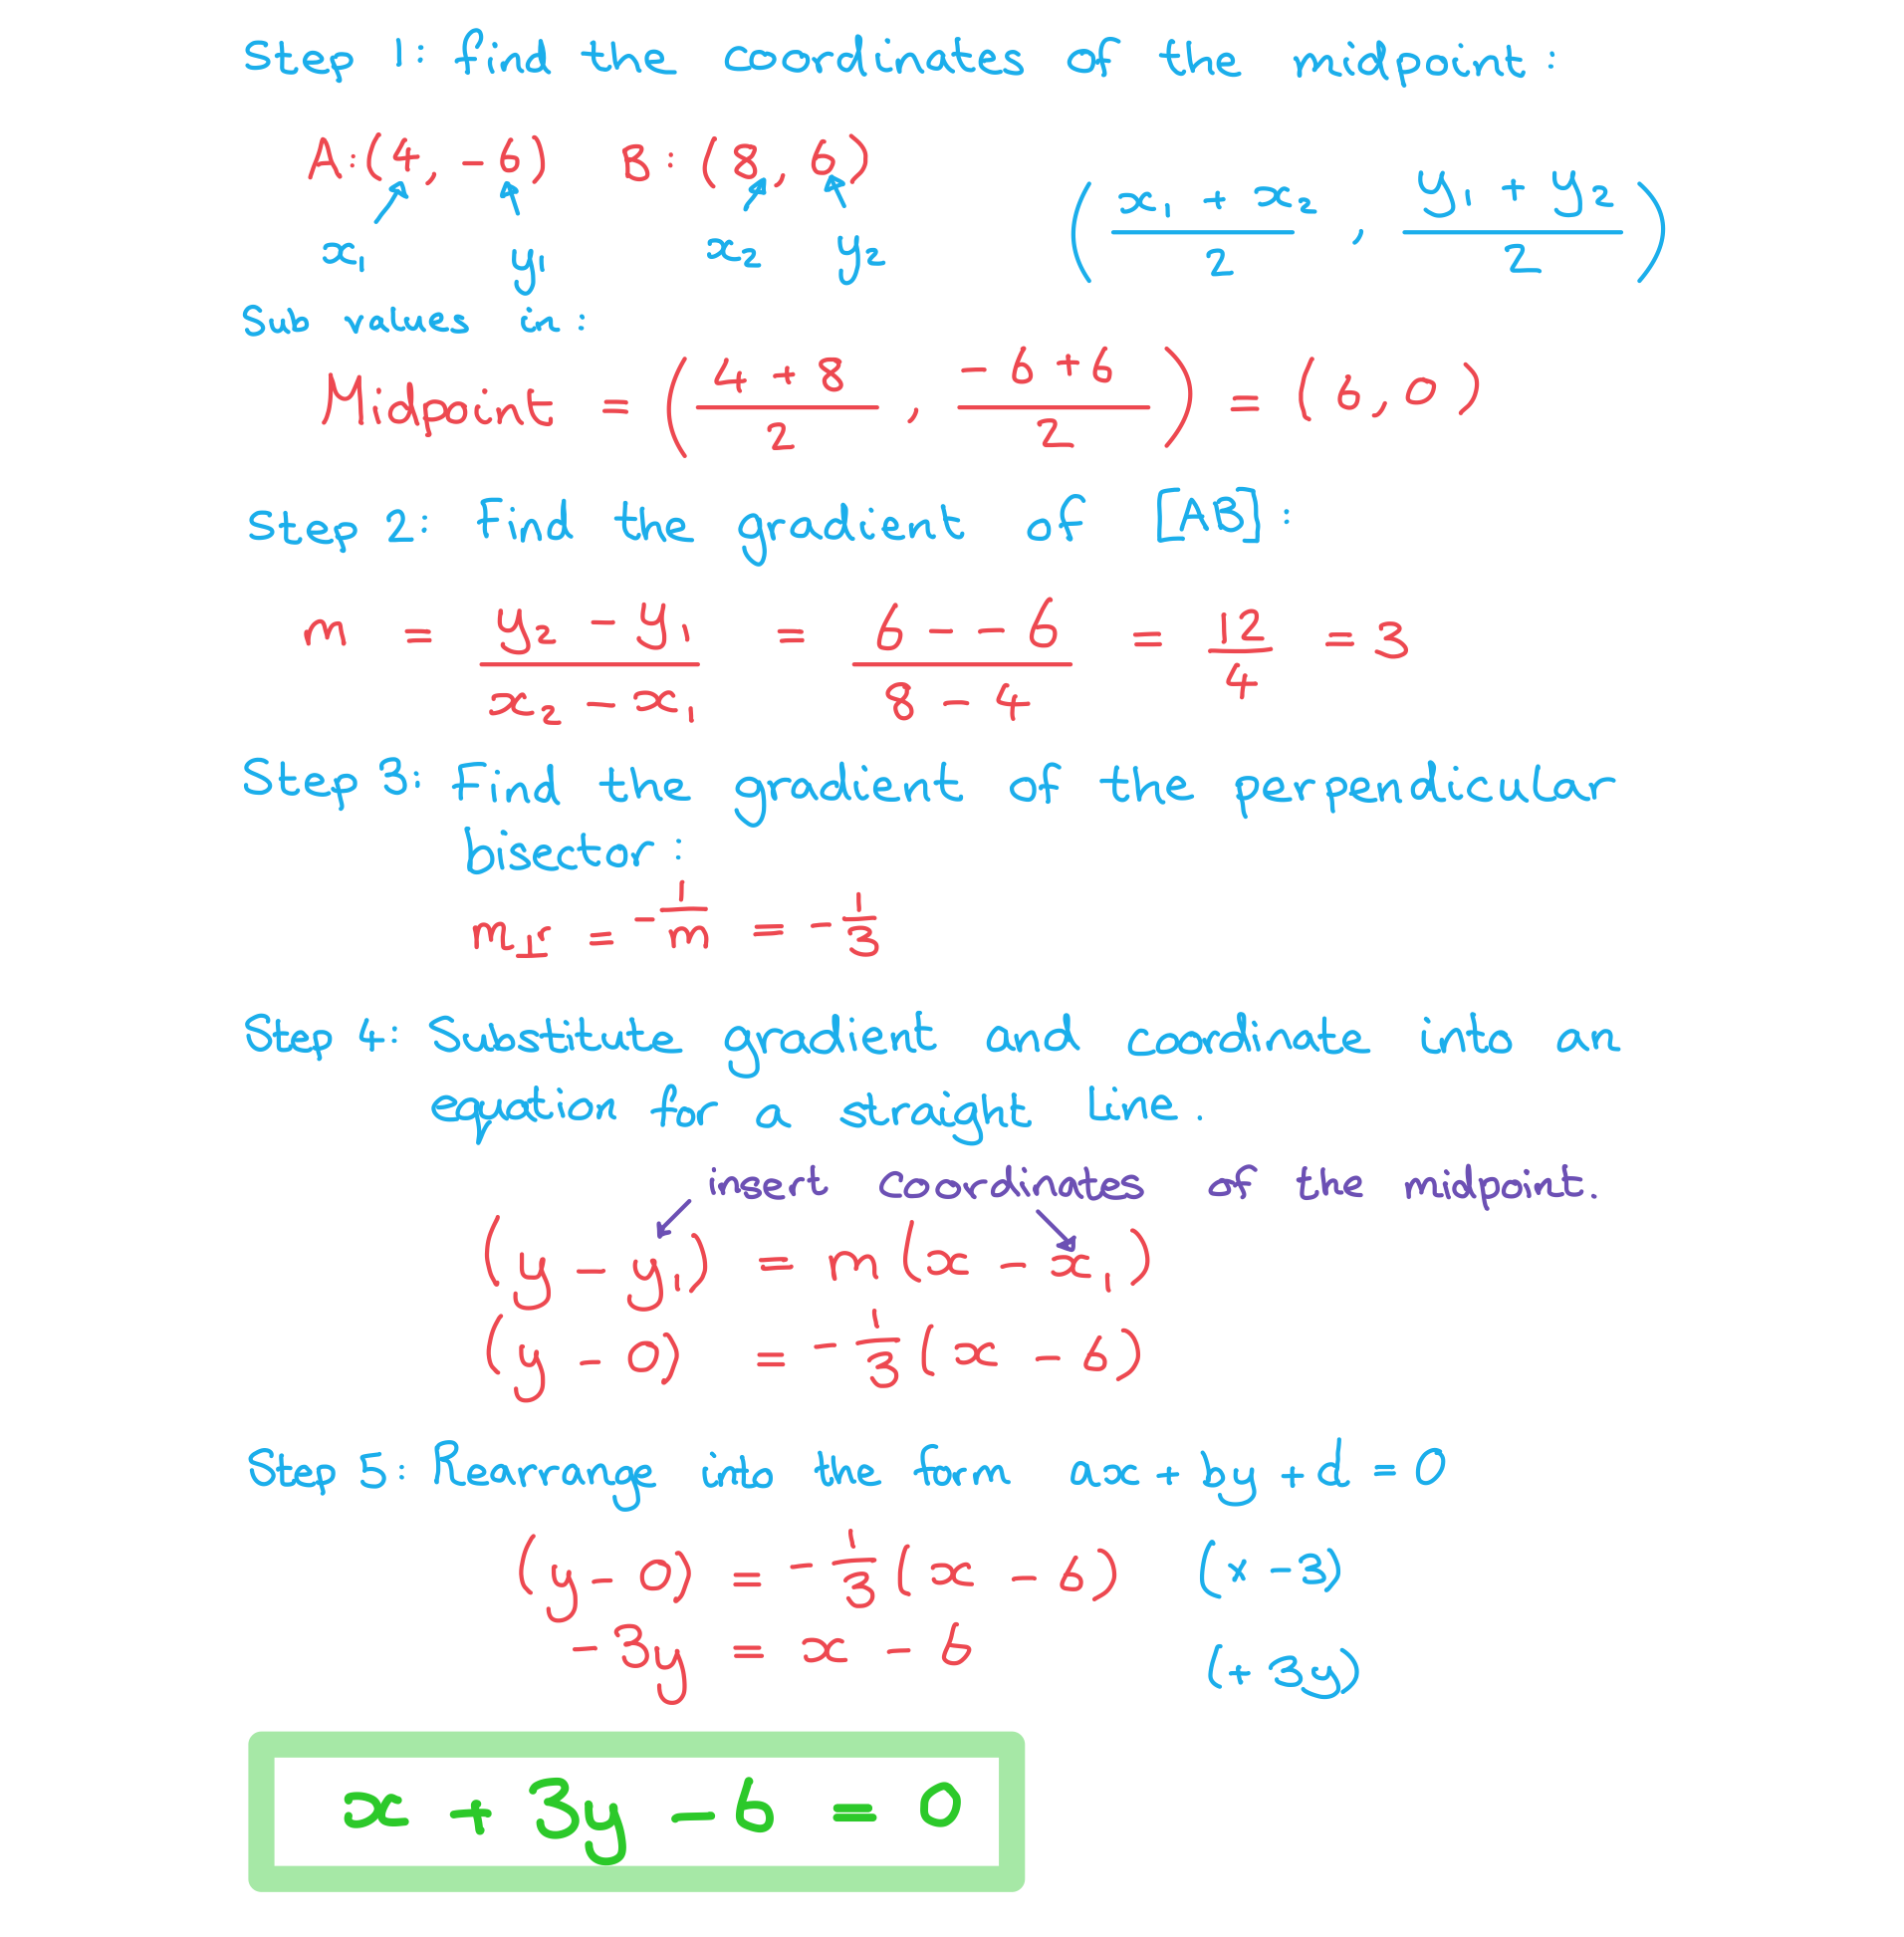 Step 1: find the coordinates of the midpoint:
A:(4, -6) B: (8, 6)
x₁ y₁ x₂ y₂
( (x₁ + x₂)/2 , (y₁ + y₂)/2 )
Sub values in:
Midpoint = ( (4 + 8)/2 , (-6 + 6)/2 ) = (6, 0)
Step 2: Find the gradient of [AB]:
m = (y₂ - y₁)/(x₂ - x₁) = (6 - - 6)/(8 - 4) = 12/4 = 3
Step 3: Find the gradient of the perpendicular
bisector:
m⊥r = -1/m = -1/3
Step 4: Substitute gradient and coordinate into an
equation for a straight line.
insert coordinates of the midpoint.
(y - y₁) = m(x - x₁)
(y - 0) = -1/3(x - 6)
Step 5: Rearrange into the form ax + by + d = 0
(y - 0) = -1/3(x - 6) (× -3)
-3y = x - 6 (+ 3y)
x + 3y - 6 = 0